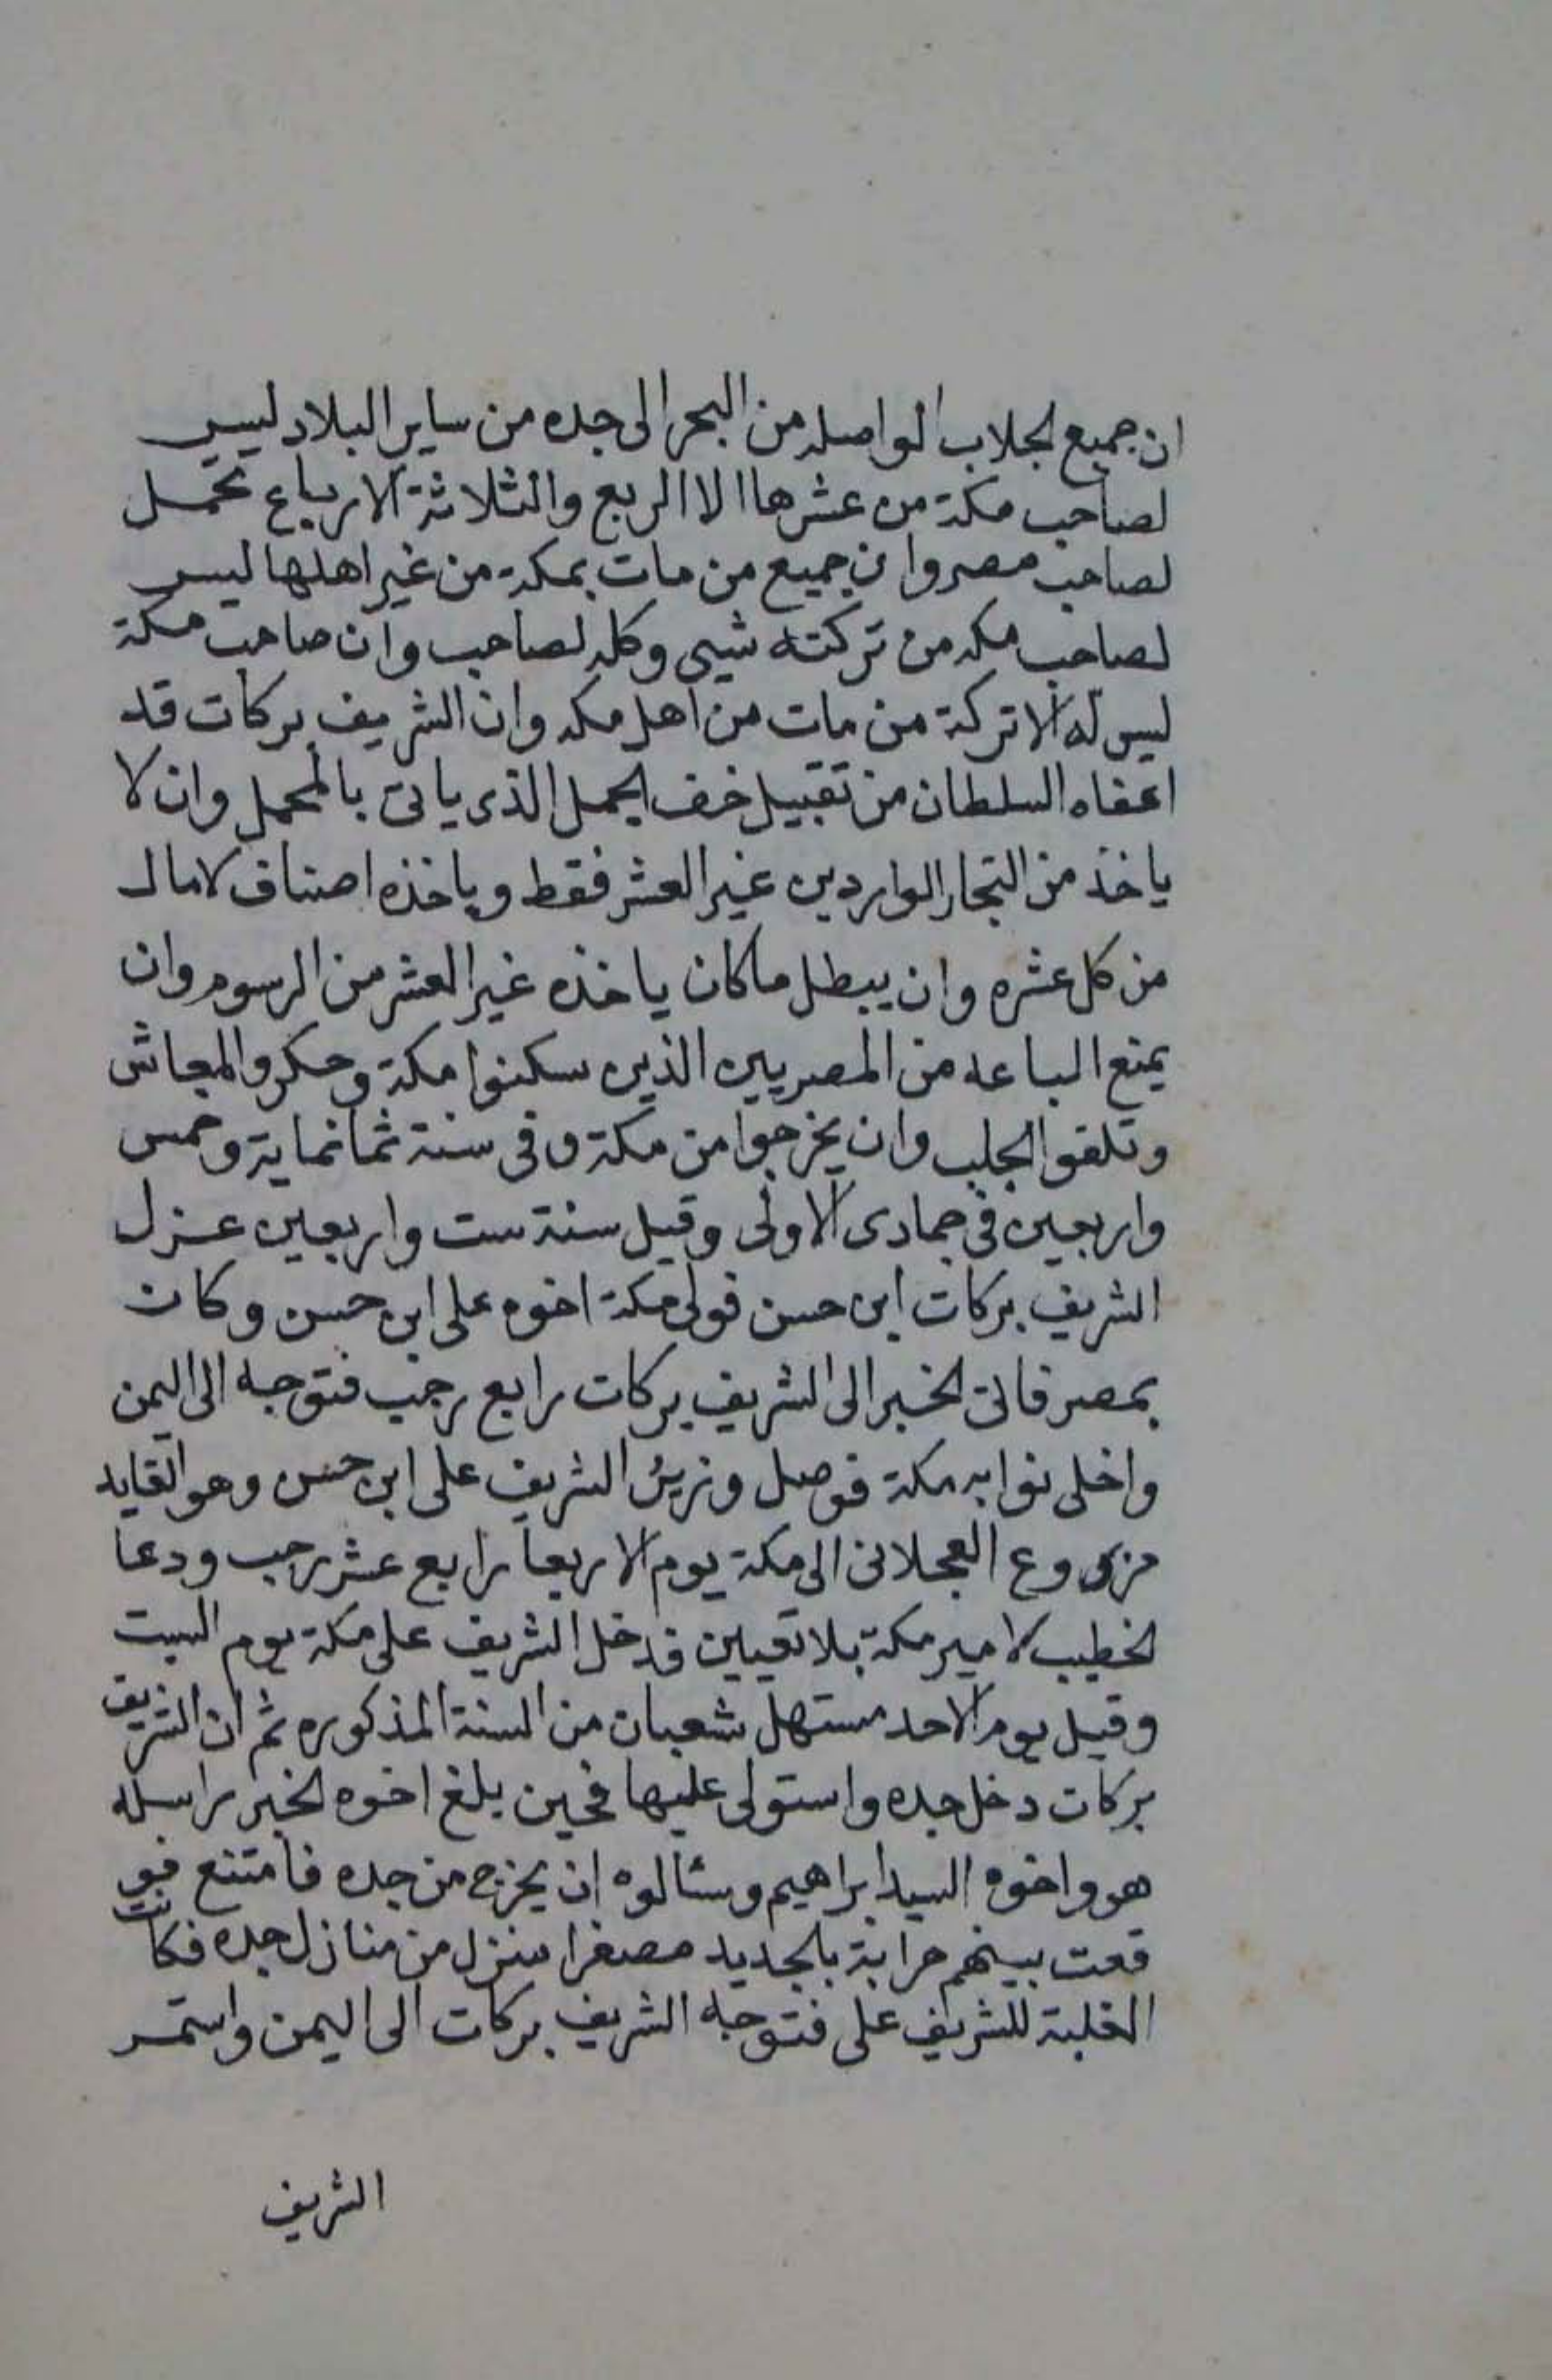 ان جميع الجلاب الواصله من البحر الى جده من ساير البلاد ليس
لصاحب مكة من عشرها الا الربع والثلاثة الارباع تحمل
لصاحب مصر وان جميع من مات بمكة من غير اهلها ليس
لصاحب مكه من تركته شيى وكله لصاحب وان صاحب مكة
ليس له الا تركة من مات من اهل مكه وان الشريف بركات قد
اعفاه السلطان من تقبيل خف الجمل الذى ياتى بالمحمل وان لا
ياخذ من التجار الواردين غير العشر فقط وياخذه اصناف لا مال
من كل عشره وان يبطل ما كان ياخذه غير العشر من الرسوم وان
يمنع الباعه من المصريين الذين سكنوا مكة وحكروا المعاش
وتلقوا الجلب وان يخرجوا من مكة وفى سنة ثمانماية وخمس
واربعين فى جمادى الاولى وقيل سنة ست واربعين عزل
الشريف بركات ابن حسن فولى مكة اخوه على ابن حسن وكان
بمصر فاتى الخبر الى الشريف بركات رابع رجب فتوجه الى اليمن
واخلى نوابه مكة فوصل وزير الشريف على ابن حسن وهو القايد
مزروع العجلانى الى مكة يوم الاربعا رابع عشر رجب ودعا
الخطيب لامير مكة بلا تعيين فدخل الشريف على مكة يوم السبت
وقيل يوم الاحد مستهل شعبان من السنة المذكوره ثم ان الشريف
بركات دخل جده واستولى عليها فحين بلغ اخوه الخبر راسله
هو واخوه السيد ابراهيم وسئالوه ان يخرج من جده فامتنع فو
قعت بينهم حرابة بالجديد مصغرا منزل من منازل جده فكانت
الغلبة للشريف على فتوجه الشريف بركات الى اليمن واستمر
الشريف